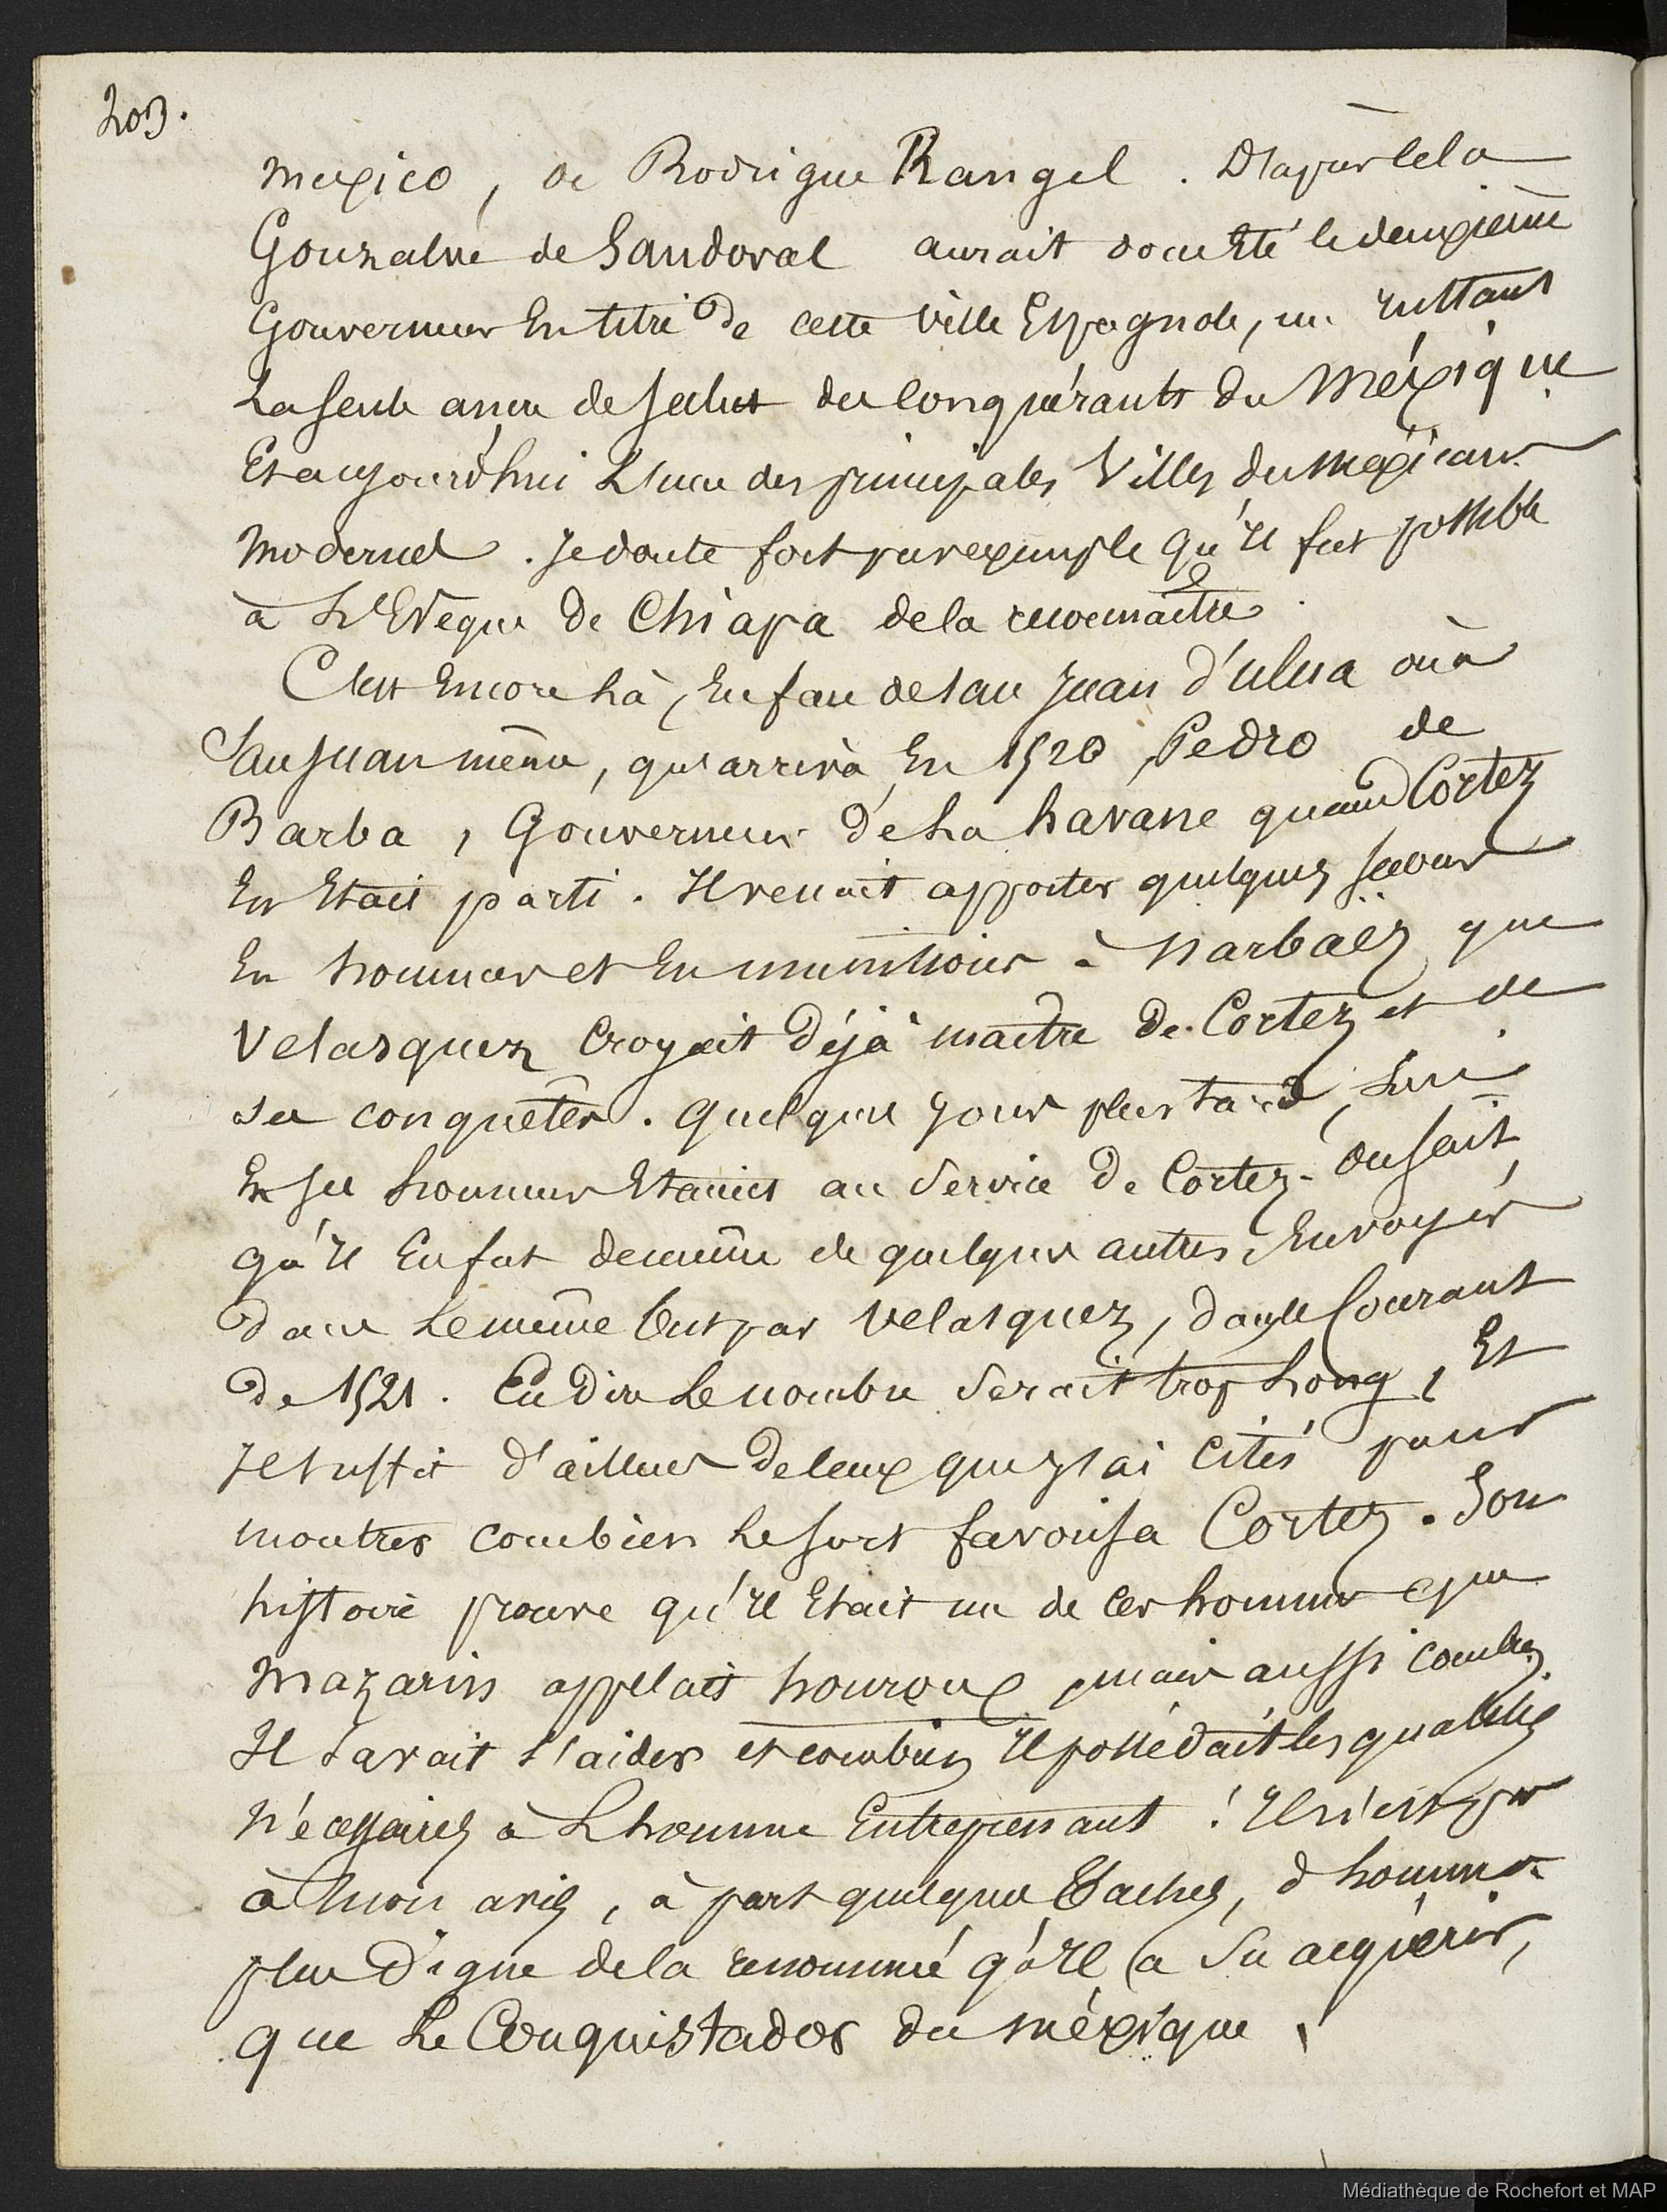 203.
mexico, de Rodrigue Rangel. D'après cela
Gonzalve de Sandoval aurait donc Eté le deuxième
Gouverneur En titre de cette ville Espagnole, un instant
La seule ancre de salut des conquérants du Méxique
Et aujourd'hui L'une des principales Villes des Mexicains
modernes. Je doute fort par exemple qu'Il fut possible
à L'Evêque De Chiapa de la reconnaître.
C'est Encore Là, En face de san Juan d'ulua ou à
San Juan même, qu'arriva En 1520 Pedro de
Barba, Gouverneur De La havane quand Cortez
En Etait parti. Il venait apporter quelques secours
En hommes et En munitions à Narbaëz que
Velasquez croyait Déjà maître De Cortez et de
ses conquêtes. quelques jours plus tard, Lui
Et ses hommes Etaient au Service De Cortez. On sait
qu'Il En fut de même de quelques autres Envoyés
dans Le même but par Velasquez, dans le Courant
De 1521. En Dire Le nombre Serait trop Long, Et
Il suffit d'ailleurs De ceux que j'ai cités pour
montrer combien Le sort favorisa Cortez. Son
histoire prouve qu'Il Etait un de ces hommes que
Mazarin appelait houroux, mais aussi combien
Il savait s'aider et combien Il possédait les qualités
nécessaires à L'homme Entreprenant! Il n'est pas
à mon avis, à part quelques taches, d'homme
plus Digne de la renommée qu'Il a Su acquérir,
que Le Conquistador du méxique.
Médiathèque de Rochefort et MAP